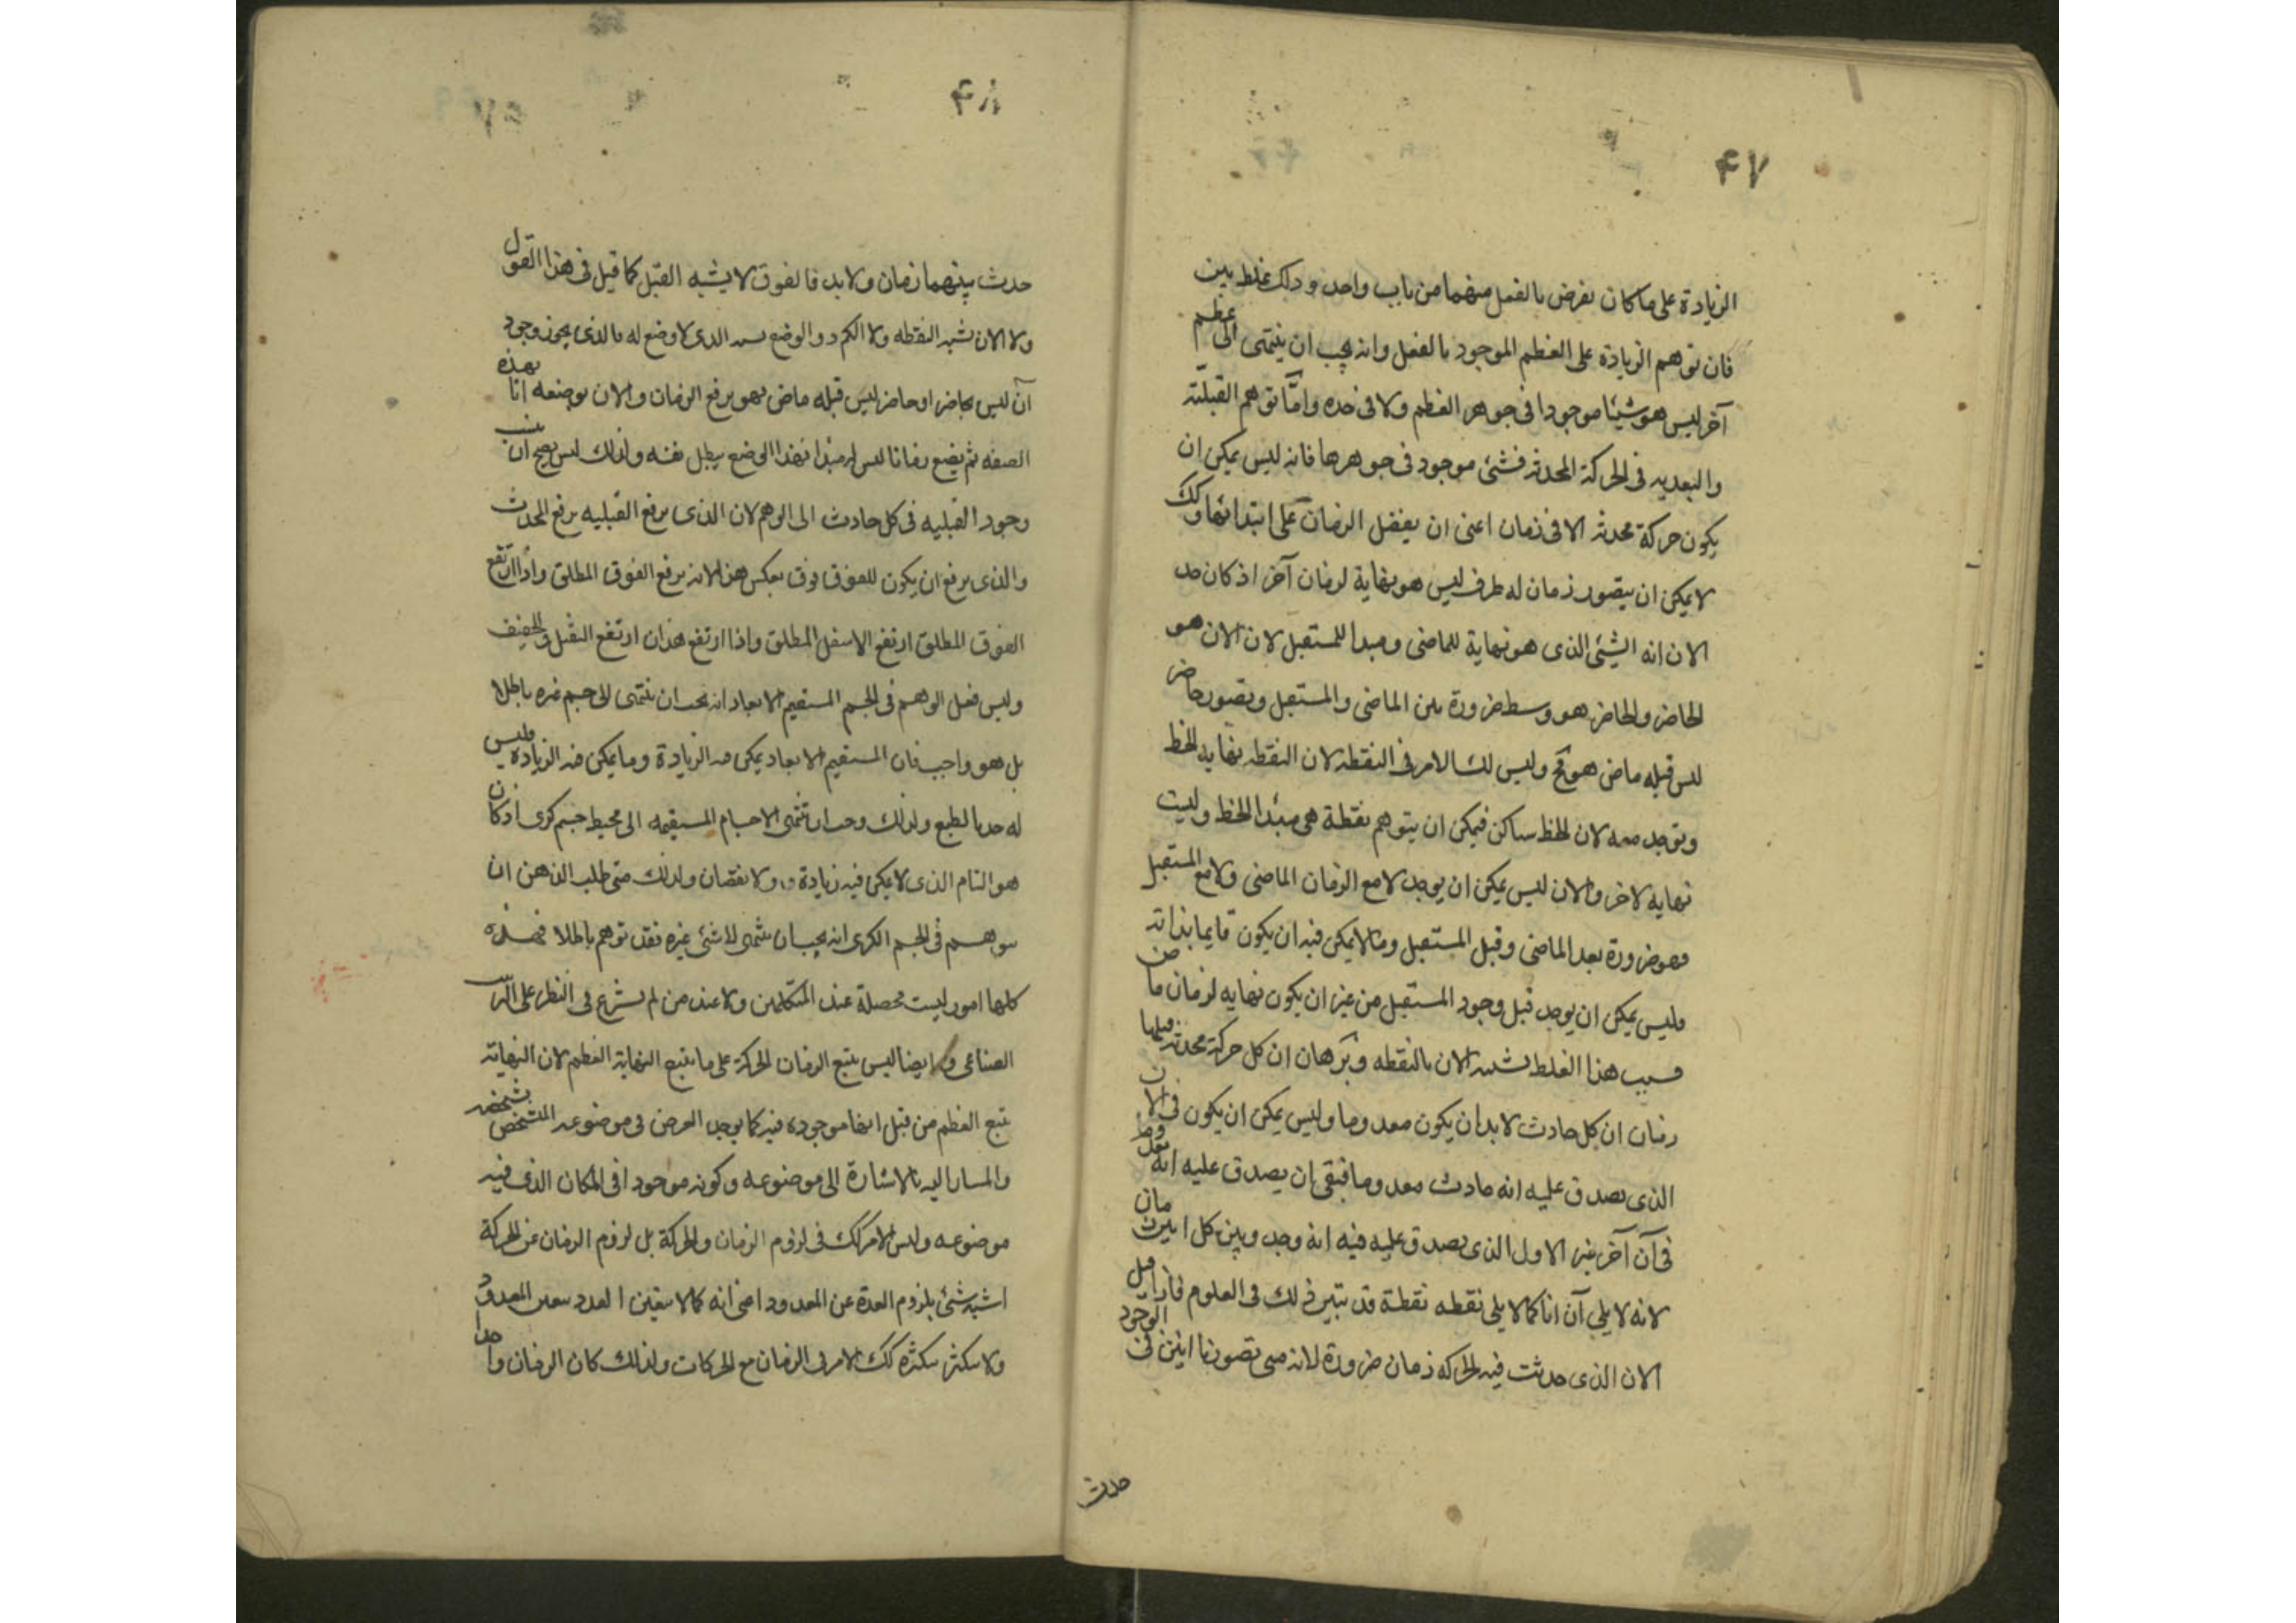 ۴۷
الزيادة على ما كان يفرض بالفعل منهما من باب واحد وذلك غلط بين
فان توهم الزيادة على العظم الموجود بالفعل وانه يجب ان ينتهى الى عظم
آخر ليس هو شيئا موجودا فى جوهر العظم ولا فى حده واما توهم القبليّة
والبعديه فى الحركة المحدثه فشئ موجود فى جوهرها فانه ليس يمكن ان
يكون حركة محدثه الا فى زمان اعنى ان يفضل الزمان على ابتدائها وكك
لا يمكن ان يتصور زمان له طرف ليس هو نهاية لزمان آخر اذ كان حد
الان انه الشئ الذى هو نهاية للماضى ومبدا للمستقبل لان الان هو
الحاضر والحاضر هو وسط ضرورة بين الماضى والمستقبل وتصور حاضر
ليس قبله ماض هو مح وليس كك الامر فى النقطه لان النقطه نهايه الخط
وتوجد معه لان الخط ساكن فيمكن ان يتوهم نقطة هى مبدا الخط وليست
نهايه لاخر والان ليس يمكن ان يوجد لا مع الزمان الماضى ولا مع المستقبل
فهو ضرورة بعد الماضى وقبل المستقبل وما لا يمكن فيه ان يكون قايما بذاته
فليس يمكن ان يوجد قبل وجود المستقبل من غير ان يكون نهايه لزمان ماض
فسبب هذا الغلط تشبيه الان بالنقطه وبرهان ان كل حركة محدثة فقبلها
زمان ان كل حادث لا بد ان يكون معدوما وليس يمكن ان يكون فى الان
الذى يصدق عليه انه حادث معدوما فبقى ان يصدق عليه انه معدوم
فى آن آخر غير الاول الذى يصدق عليه فيه انه وجد وبين كل انين زمان
لانه لا يلى آن انا كما لا يلى نقطه نقطة قد تبين ذلك فى العلوم فاذا قبل
الان الذى حدثت فيه الحركه زمان ضرورة لانه متى تصورنا انين فى الوجود
حدث
۴۸
حدث بينهما زمان ولا بد فالفوق لا يشبه القبل كما قيل فى هذا القول
ولا الان شبه النقطه ولا الكم ذو الوضع يشبه الذى لا وضع له فالذى يجوز وجود
آن ليس بحاضر او حاضر ليس قبله ماض فهو يرفع الزمان والان بوضعه انا بهذه
الصفه ثم يضع زمانا ليس له مبدا فهذا الوضع يبطل نفسه ولذلك ليس يصح ان ينسب
وجود القبليه فى كل حادث الى الوهم لان الذى يرفع القبليه يرفع المحدث
والذى يرفع ان يكون للفوق فوق بعكس هذا لانه يرفع الفوق المطلق واذا ارتفع
الفوق المطلق ارتفع الاسفل المطلق واذا ارتفع هذان ارتفع الثقيل والخفيف
وليس فعل الوهم فى الجسم المستقيم الابعاد انه يجب ان ينتهى الى جسم غيره باطلا
بل هو واجب فان المستقيم الابعاد يمكن فيه الزيادة وما يمكن فيه الزيادة فليس
له حد بالطبع ولذلك وجب ان تنتهى الاجسام المستقيمه الى محيط جسم كرى اذ كان
هو التام الذى لا يمكن فيه زيادة ولا نقصان ولذلك متى طلب الذهن ان
يتوهم فى الجسم الكرى انه يجب ان ينتهى الى شئ غيره فقد توهم باطلا فهذه
كلها امور ليست محصلة عند المتكلمين ولا عند من لم يشرع فى النظر على الترتيب
الصناعى وايضا ليس يتبع الزمان الحركة على ما يتبع النهاية العظم لان النهاية
تتبع العظم من قبل انها موجوده فيه كما يوجد العرض فى موضوعه المتشخص بشخصه
والمشار اليه بالاشارة الى موضوعه وكونه موجودا فى المكان الذى فيه
موضوعه وليس الامر كك فى لزوم الزمان والحركة بل لزوم الزمان عن الحركة
اشبه شئ بلزوم العدد عن المعدود اعنى انه كما لا يتعين العدد بتعين المعدود
ولا يتكثر بتكثره كك الامر فى الزمان مع الحركات ولذلك كان الزمان واحدا